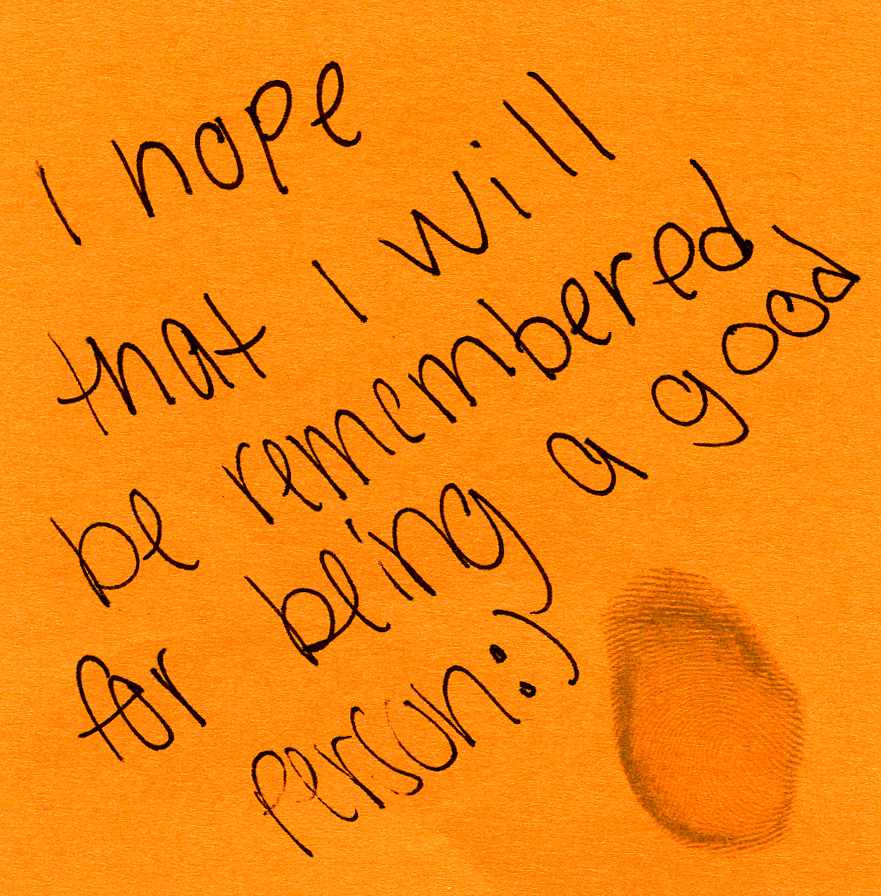 I hope
that I will
be remembered
for being a good
person:)